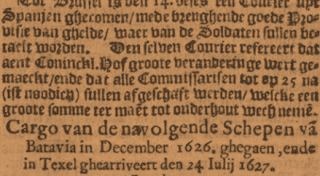 Tot Brussel is den 14. deses een Courier uyt
Spanjen ghecomen/ mede brenghende goede Pro-
visie van ghelde/ waer van de Soldaten sullen be-
taelt worden. Den selven Courier refereert dat
aent Coninckl. Hof groote veranderinge wert ge-
maeckt/ ende dat alle Commissarisen tot op 25 na
(ist noodich) sullen afgeschaft werden/ welcke een
groote somme ter maet tot onderhout wech nemẽ.
Cargo van de navolgende Schepen vã
Batavia in December 1626. ghegaen, ende
in Texel ghearriveert den 24 Iulij 1627.